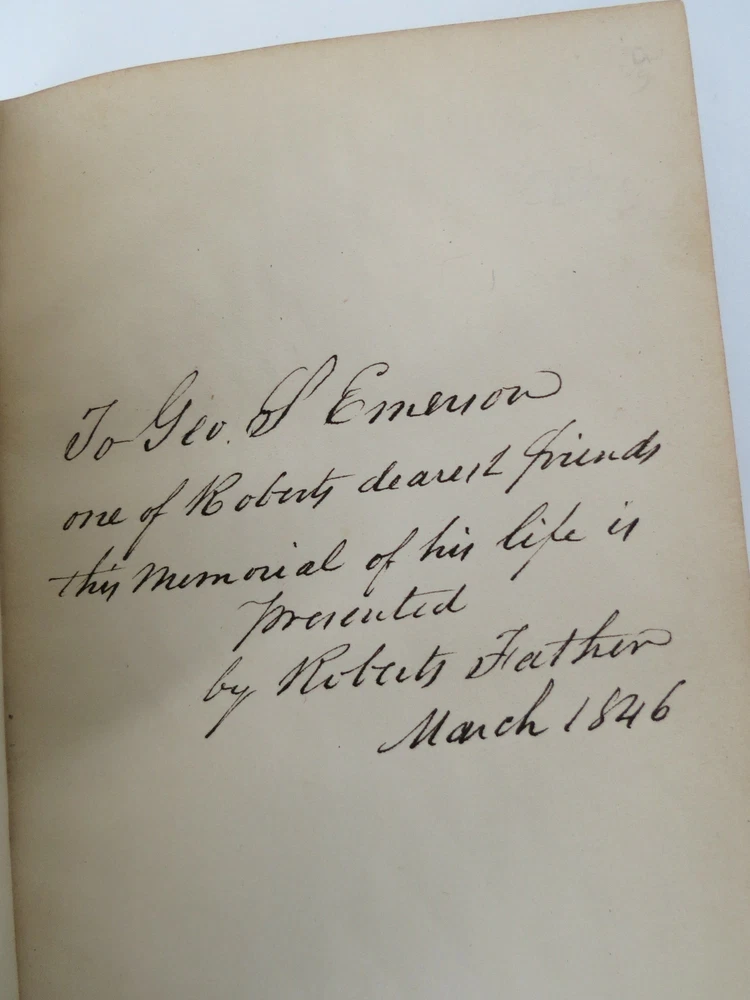 To Geo. S Emerson
one of Roberts dearest friends
this memorial of his life is
presented
by Roberts Father
March 1846